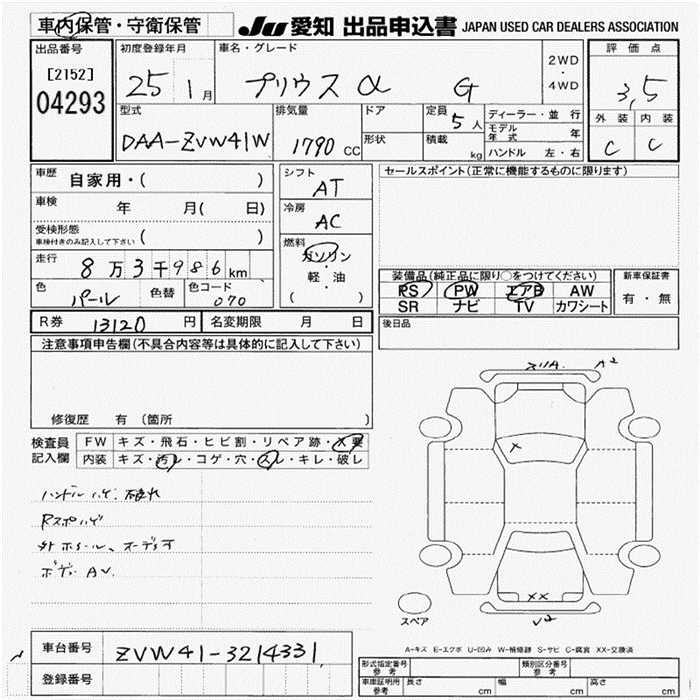 車内保管・守衛保管 JU 愛知 出品申込書 JAPAN USED CAR DEALERS ASSOCIATION
出品番号 初度登録年月 車名・グレード 2WD ・ 4WD 評価点
[2152] 04293 25 1月 プリウスα G 3,5
型式 排気量 ドア 定員 5人 ディーラー・並行 外装 内装
DAA-ZVW41W 1790 CC 形状 積載 kg モデル年式 年 C C
ハンドル 左・右
車歴 自家用・( ) シフト AT セールスポイント(正常に機能するものに限ります)
車検 年 月( 日) 冷房 AC
受検形態 車検付きのみ記入して下さい ( ) 燃料 ガソリン・軽・油 ( )
走行 8万3千986km 装備品(純正品に限り○をつけてください) 新車保証書
色 パール 色替 色コード 070 PS PW エアB AW 有・無
SR ナビ TV カワシート
R券 13120円 名変期限 月 日 後日品
注意事項申告欄(不具合内容等は具体的に記入して下さい)
スリA. A2
修復歴 有 (箇所 )
検査員記入欄 FW キズ・飛石・ヒビ割・リペア跡・X要
内装 キズ・汚レ・コゲ・穴・スレ・キレ・破レ
X
ハンドルハゲ.
Rスポハゲ
外ホイール、オーディオ
ボディ AV.
XX
スペア V2
A-キズ E-エクボ U-凹み W-補修跡 S-サビ C-腐食 XX-交換済
車台番号 ZVW41-3214331
登録番号
形式指定番号 参考 類別区分番号 参考
車庫証明用 参考 長さ cm 幅 cm 高さ cm